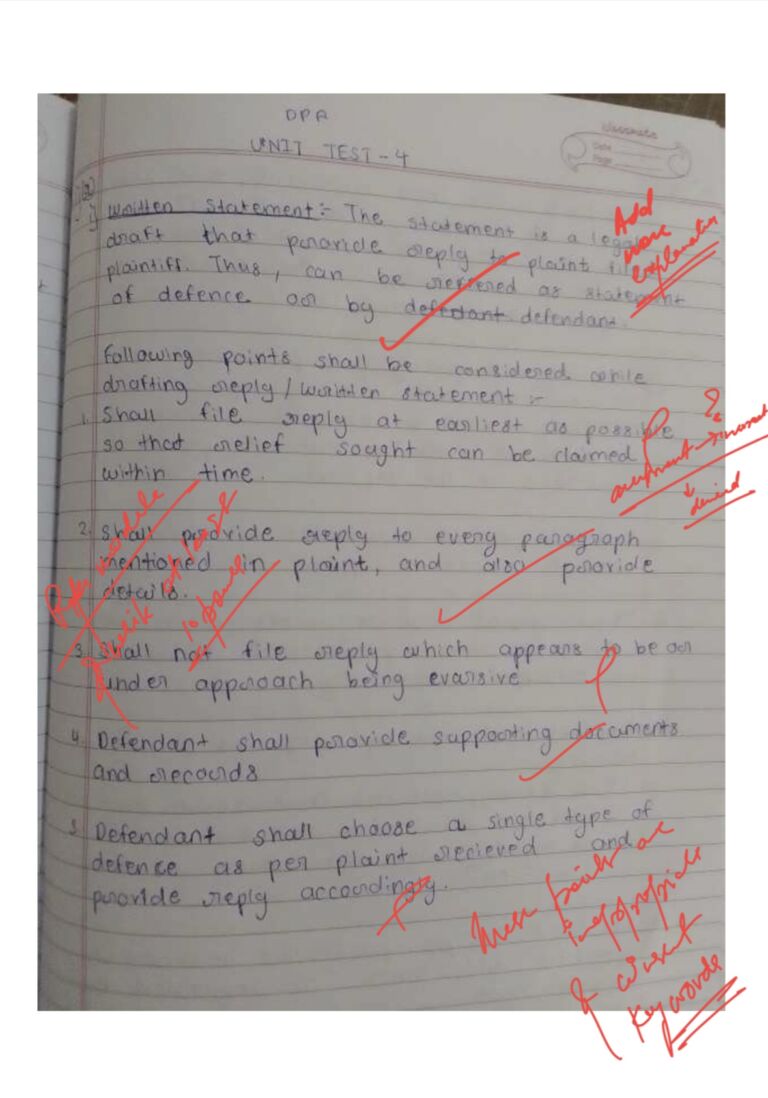 DPA
UNIT TEST-4
classmate
Date
Page
i) Written Statement:- The statement is a legal
draft that provide reply to plaint
plaintiff. Thus, can be referred as statement
of defence or by defendant.
Following points shall be considered while
drafting reply/written statement :-
1. Shall file reply at earliest as possible
so that relief sought can be claimed
within time.
2. Shall provide reply to every paragraph
mentioned in plaint, and also provide
details.
3. Shall not file reply which appears to be or
under approach being evarsive
4. Defendant shall provide supporting documents
and records
5. Defendant shall choose a single type of
defence as per plaint recieved and
provide reply accordingly.
Add
more
explanation
denied
Refer module
& write at least
10 points
These points are
inappropriate
& without
keywords